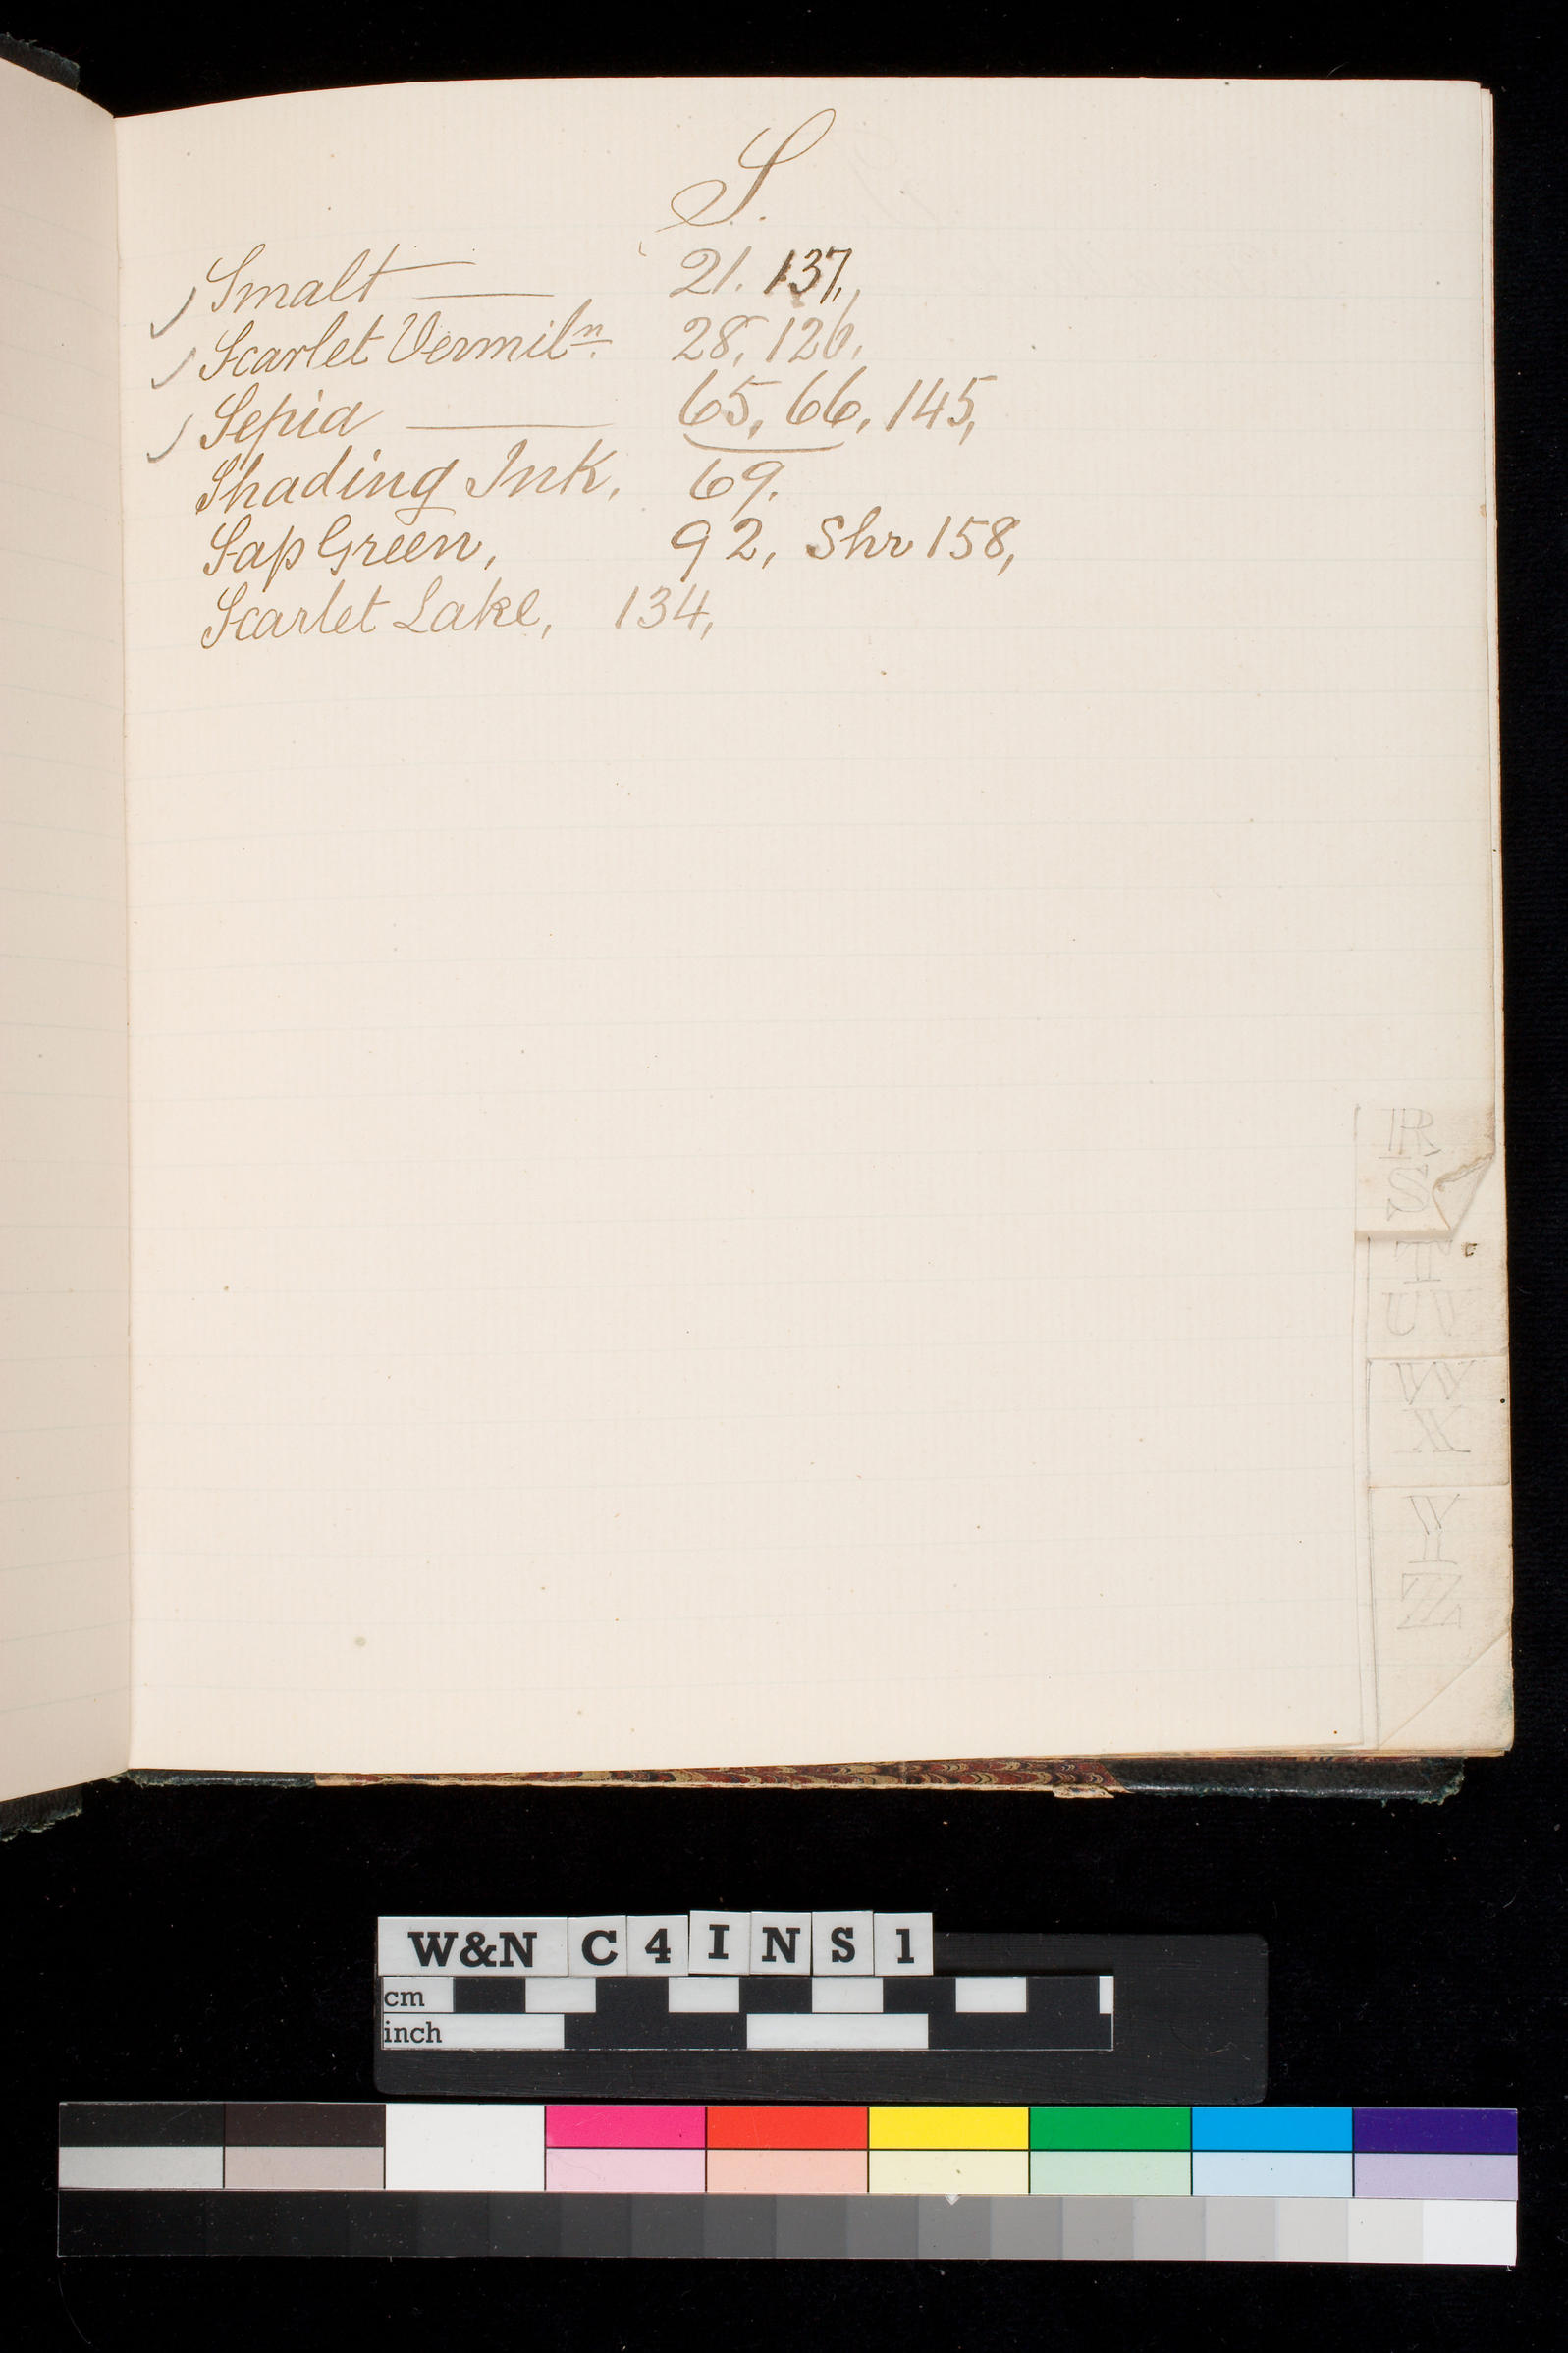 S.
Smalt — 21. 137,,
Scarlet Vermilⁿ. 28, 126,
Sepia — 65, 66, 145,
Shading Ink, 69.
Sap Green, 92, Shr 158,
Scarlet Lake, 134,
R
S
T
UV
W
X
Y
Z
W&N C4INS1
cm
inch